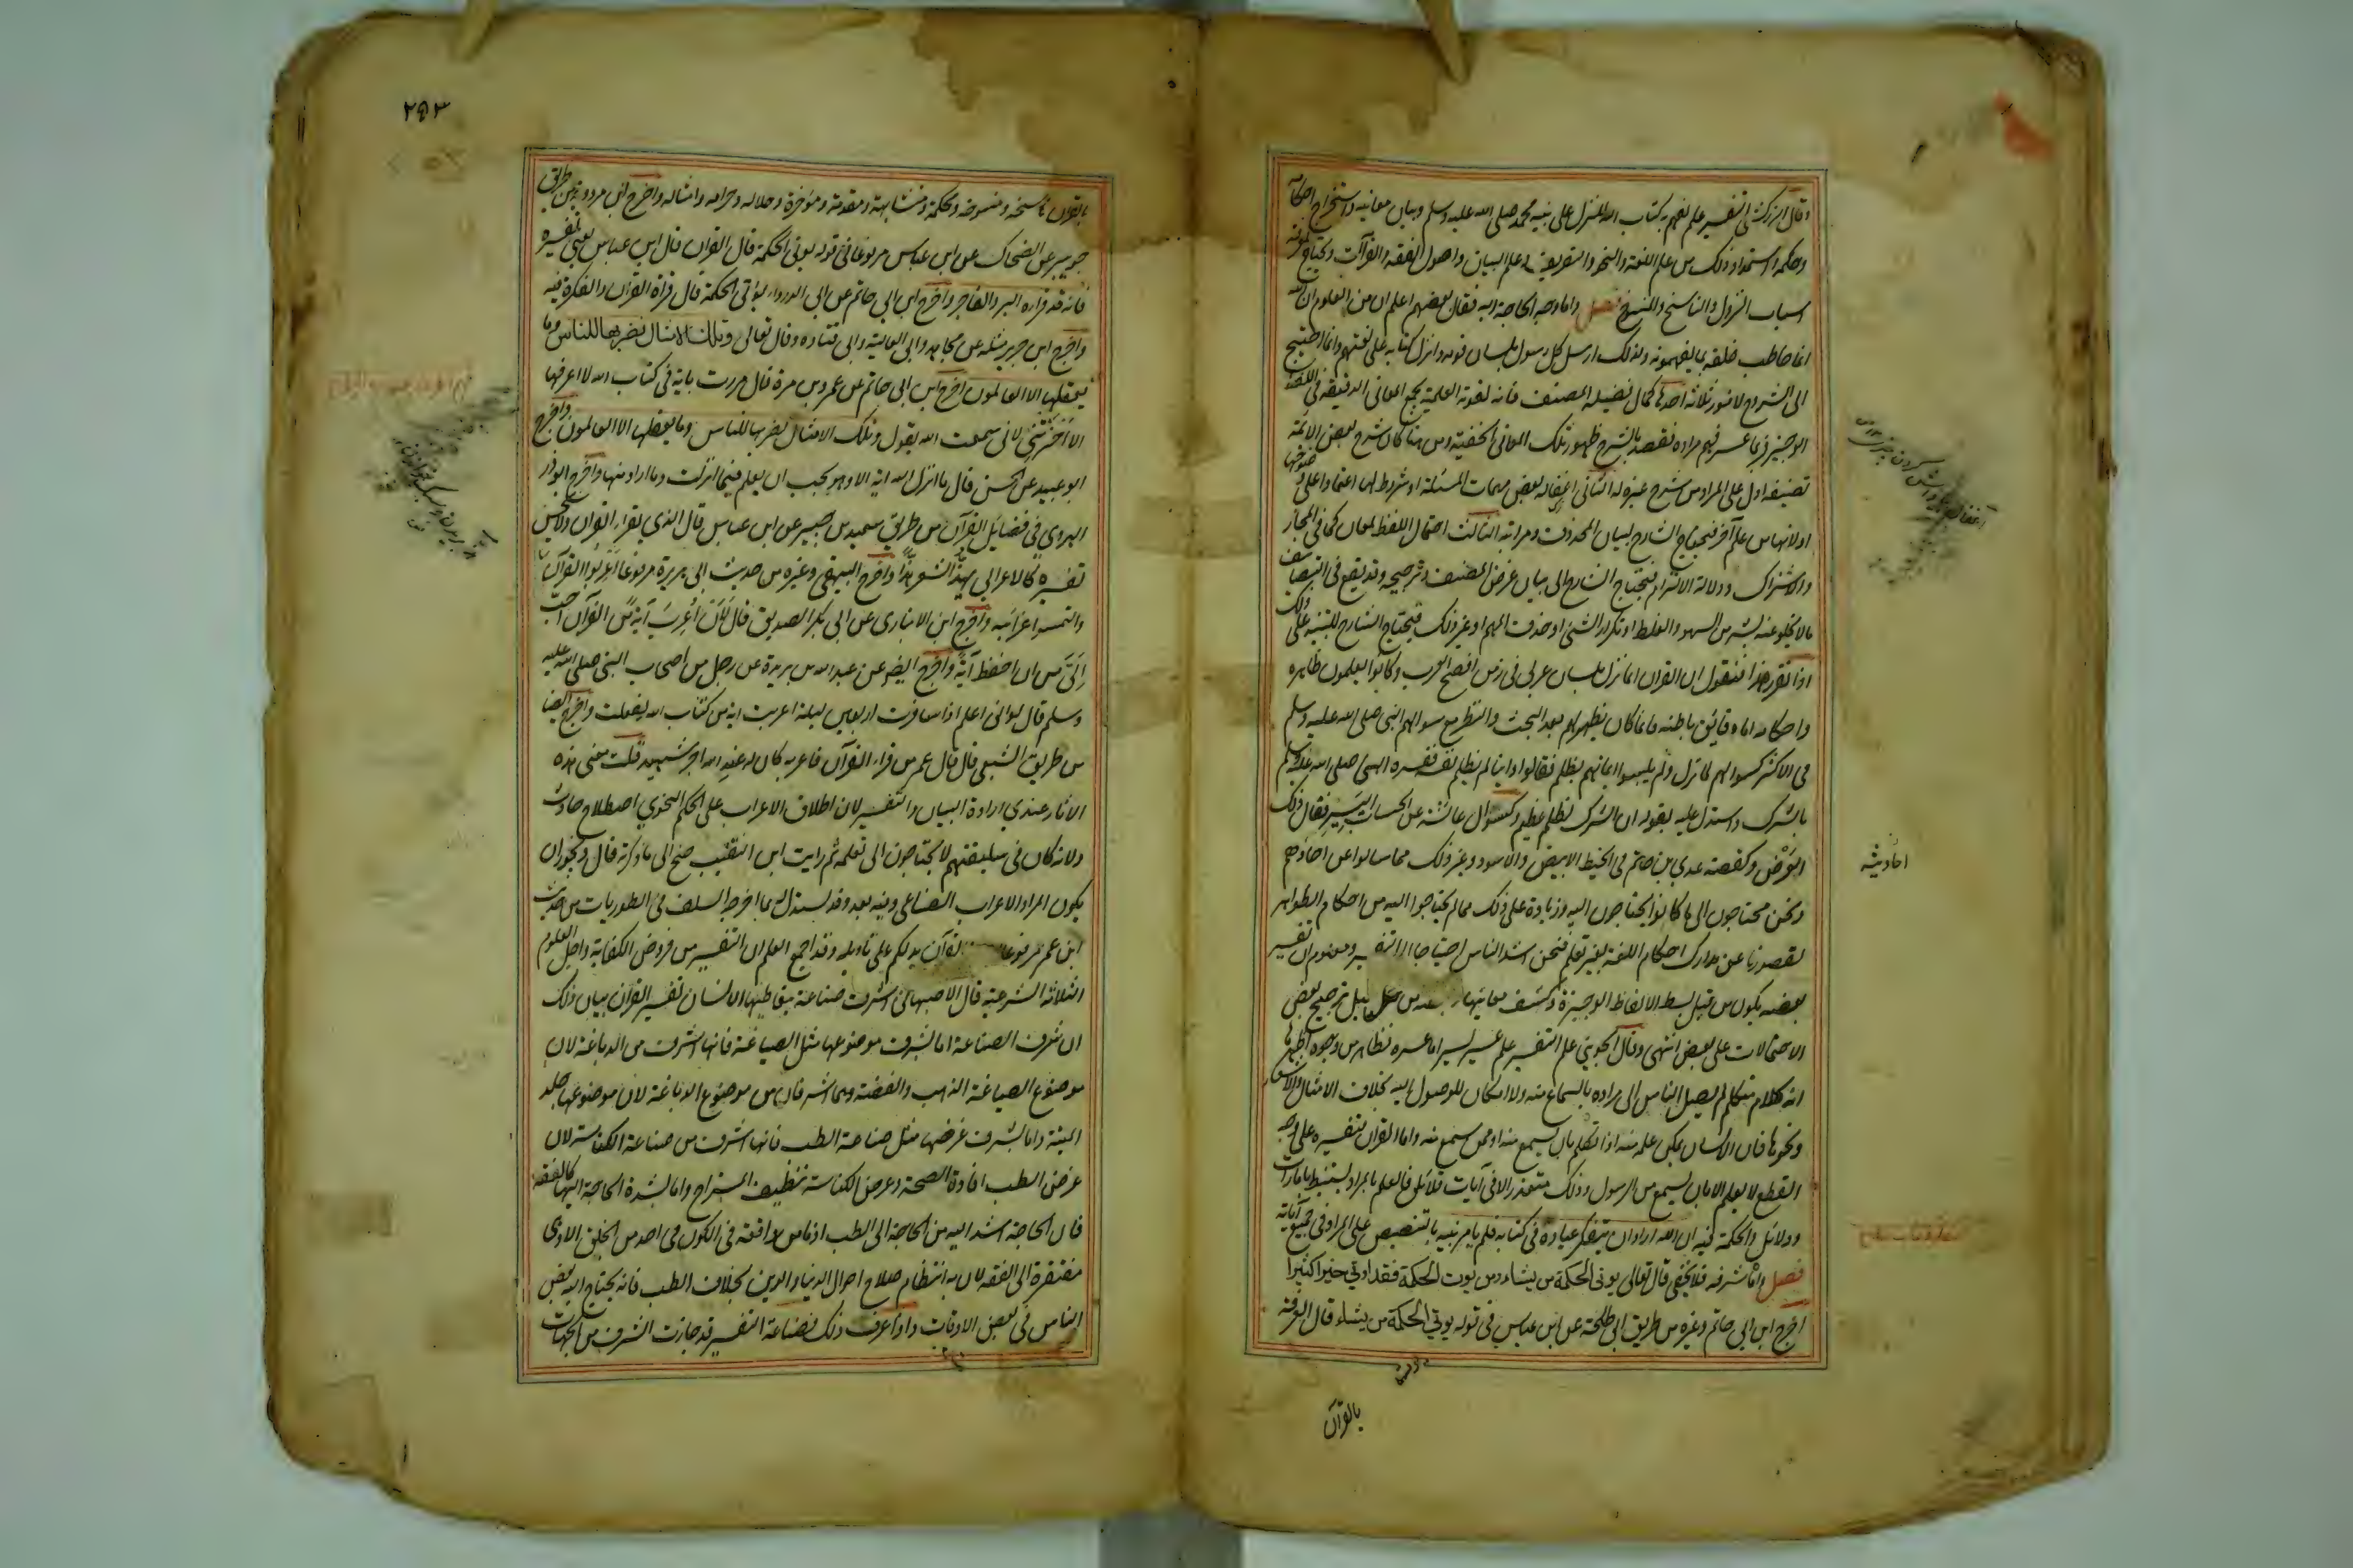 وقال الزركشي التفسير علم يفهم به كتاب الله المنزل على نبيه محمد صلى الله عليه وسلم وبيان معانيه واستخراج احكامه
وحكمه واستمداد ذلك من علم اللغة والنحو والتصريف وعلم البيان واصول الفقه والقراآت ويحتاج لمعرفة
اسباب النزول والناسخ والمنسوخ فصل واما وجه الحاجة اليه فقال بعضهم اعلم ان من المعلوم ان الله
انما خاطب خلقه بما يفهمونه ولذلك ارسل كل رسول بلسان قومه وانزل كتابه على لغتهم وانما احتيج
الى الشروح لامور ثلاثة احدها كمال فضيلة المصنف فانه لقوته العلمية يجمع المعانى الدقيقة في اللفظ
الوجيز فربما عسر فهم مراده فقصد بالشرح ظهور تلك المعانى الخفية ومن هنا كان شرح بعض الائمة
تصنيفه ادل على المراد من شرح غيره له الثانى اغفاله بعض مهمات المسئلة او شروط لها اعتمادا على وضوحها
او لانها من علم آخر فيحتاج الشارح لبيان المحذوف ومراتبه الثالث احتمال اللفظ لمعان كما في المجاز
والاشتراك ودلالة الالتزام فيحتاج الشارح الى بيان غرض المصنف وترجيحه وقد يقع في التصانيف
ما لا يخلو عنه بشر من السهو والغلط او تكرار الشئ او حذف المبهم او غير ذلك فيحتاج الشارح للتنبيه على ذلك
اذا تقرر هذا فنقول ان القران انما نزل بلسان عربى فى زمن افصح العرب وكانوا يعلمون ظاهره
واحكامه اما دقائق باطنه فانما كان يظهر لهم بعد البحث والنظر مع سوالهم النبى صلى الله عليه وسلم
فى الاكثر كسوالهم لما نزل ولم يلبسوا ايمانهم بظلم فقالوا واينا لم يظلم نفسه ففسره النبى صلى الله عليه وسلم
بالشرك واستدل عليه بقوله ان الشرك لظلم عظيم وكسؤال عائشة عن الحساب اليسير فقال ذلك
العرض وكقصة عدي بن حاتم فى الخيط الابيض والاسود وغير ذلك مما سالوا عن احادهم
ونحن محتاجون الى ما كانوا يحتاجون اليه وزيادة على ذلك مما لم يحتاجوا اليه من احكام الظواهر
لقصورنا عن مدارك احكام اللغة بغير تعلم فنحن اشد الناس احتياجا الى التفسير ومعلوم ان تفسير
بعضه يكون من قبل بسط الالفاظ الوجيزة وكشف معانيها وبعضه من قبيل ترجيح بعض
الاحتمالات على بعض انتهى وقال الجوينى علم التفسير علم عسير يسير اما عسره فظاهر من وجوه اظهرها
انه كلام متكلم لم يصل الناس الى مراده بالسماع منه ولا امكان للوصول اليه بخلاف الامثال والاشعار
ونحوها فان الانسان يمكن علمه منه اذا تكلم بان يسمع منه او ممن سمع منه واما القران فتفسيره على وجه
القطع لا يعلم الا بان يسمع من الرسول وذلك متعذر الا فى آيات قلائل فالعلم بالمراد يستنبط بامارات
ودلائل والحكمة فيه ان الله اراد ان يتفكر عباده فى كتابه فلم يامر نبيه بالتنصيص على المراد فى جميع آياته
فصل واما شرفه فلا يخفى قال تعالى يوتى الحكمة من يشاء ومن يوت الحكمة فقد اوتى خيرا كثيرا
اخرج ابن ابى حاتم وغيره من طريق ابى طلحة عن ابن عباس فى قوله يوتى الحكمة من يشاء قال المعرفة
بالقرآن
احاديثه
٢٥٣
بالقرآن ناسخه ومنسوخه ومحكمه ومتشابهه ومقدمه ومؤخره وحلاله وحرامه وامثاله واخرج ابن مردويه من طريق
جويبر عن الضحاك عن ابن عباس مرفوعا فى قوله يوتى الحكمة قال القران قال ابن عباس يعنى تفسيره
فانه قد قراه البر والفاجر واخرج ابن ابى حاتم عن ابى الدرداء يؤتى الحكمة قال قراة القران والفكرة فيه
واخرج ابن جرير مثله عن مجاهد وابى العالية وابى قتاده وقال تعالى وتلك الامثال نضربها للناس وما
يعقلها الا العالمون اخرج ابن ابى حاتم عن عمرو بن مرة قال مررت باية فى كتاب الله لا اعرفها
الا احزنتنى لانى سمعت الله يقول وتلك الامثال نضربها للناس وما يعقلها الا العالمون واخرج
ابو عبيد عن الحسن قال ما انزل الله اية الا وهو يحب ان يعلم فيما انزلت وما اراد منها واخرج ابو ذر
الهروي فى فضائل القرآن من طريق سعيد بن جبير عن ابن عباس قال الذي يقرا القران ولا يحسن
تفسيره كالاعرابى يهذ الشعر هذا واخرج البيهقى وغيره من حديث ابى هريرة مرفوعا اعربوا القرآن
والتمسوا غرائبه واخرج ابن الانبارى عن ابى بكر الصديق قال لان اعرب آية من القرآن احب
الى من ان احفظ آية واخرج ايضا عن عبد الله بن بريدة عن رجل من اصحاب النبى صلى الله عليه
وسلم قال لو انى اعلم اذا سافرت اربعين ليلة اعربت اية من كتاب الله لفعلت واخرج ايضا
من طريق الشعبى قال قال عمر من قراء القرآن فاعربه كان له عند الله اجر شهيد قلت معنى هذه
الاثار عندي ارادة البيان والتفسير لان اطلاق الاعراب على الحكم النحوي اصطلاح حادث
ولانه كان فى سليقتهم لا يحتاجون الى تعلمه ثم رايت ابن النقيب جنح الى ما ذكرته قال ويجوز ان
يكون المراد الاعراب الصناعى وفيه بعد وقد يستدل له بما اخرجه السلفى فى الطوريات من حديث
ابن عمر مرفوعا القرآن يدلكم على تاويله وقد اجمع العلما ان التفسير من فروض الكفاية واجل العلوم
الثلاثة الشرعية قال الاصبهانى اشرف صناعة يتعاطيها الانسان تفسير القرآن بيان ذلك
ان شرف الصناعة اما بشرف موضوعها مثل الصياغة فانها اشرف من الدباغة لان
موضوع الصياغة الذهب والفضة وهما اشرف من موضوع الدباغة لان موضوعها جلد
الميتة واما بشرف غرضها مثل صناعة الطب فانها اشرف من صناعة الكناسة لان
غرض الطب افادة الصحة وغرض الكناسة تنظيف المستراح واما بشدة الحاجة اليها كالفقه
فان الحاجة اشد اليه من الحاجة الى الطب اذ ما من واقعة فى الكون فى احد من الخلق الا وهى
مفتقرة الى الفقه لان به انتظام صلاح احوال الدنيا والدين بخلاف الطب فانه يحتاج اليه بعض
الناس فى بعض الاوقات واذا عرف ذلك فصناعة التفسير قد حازت الشرف من الجهات